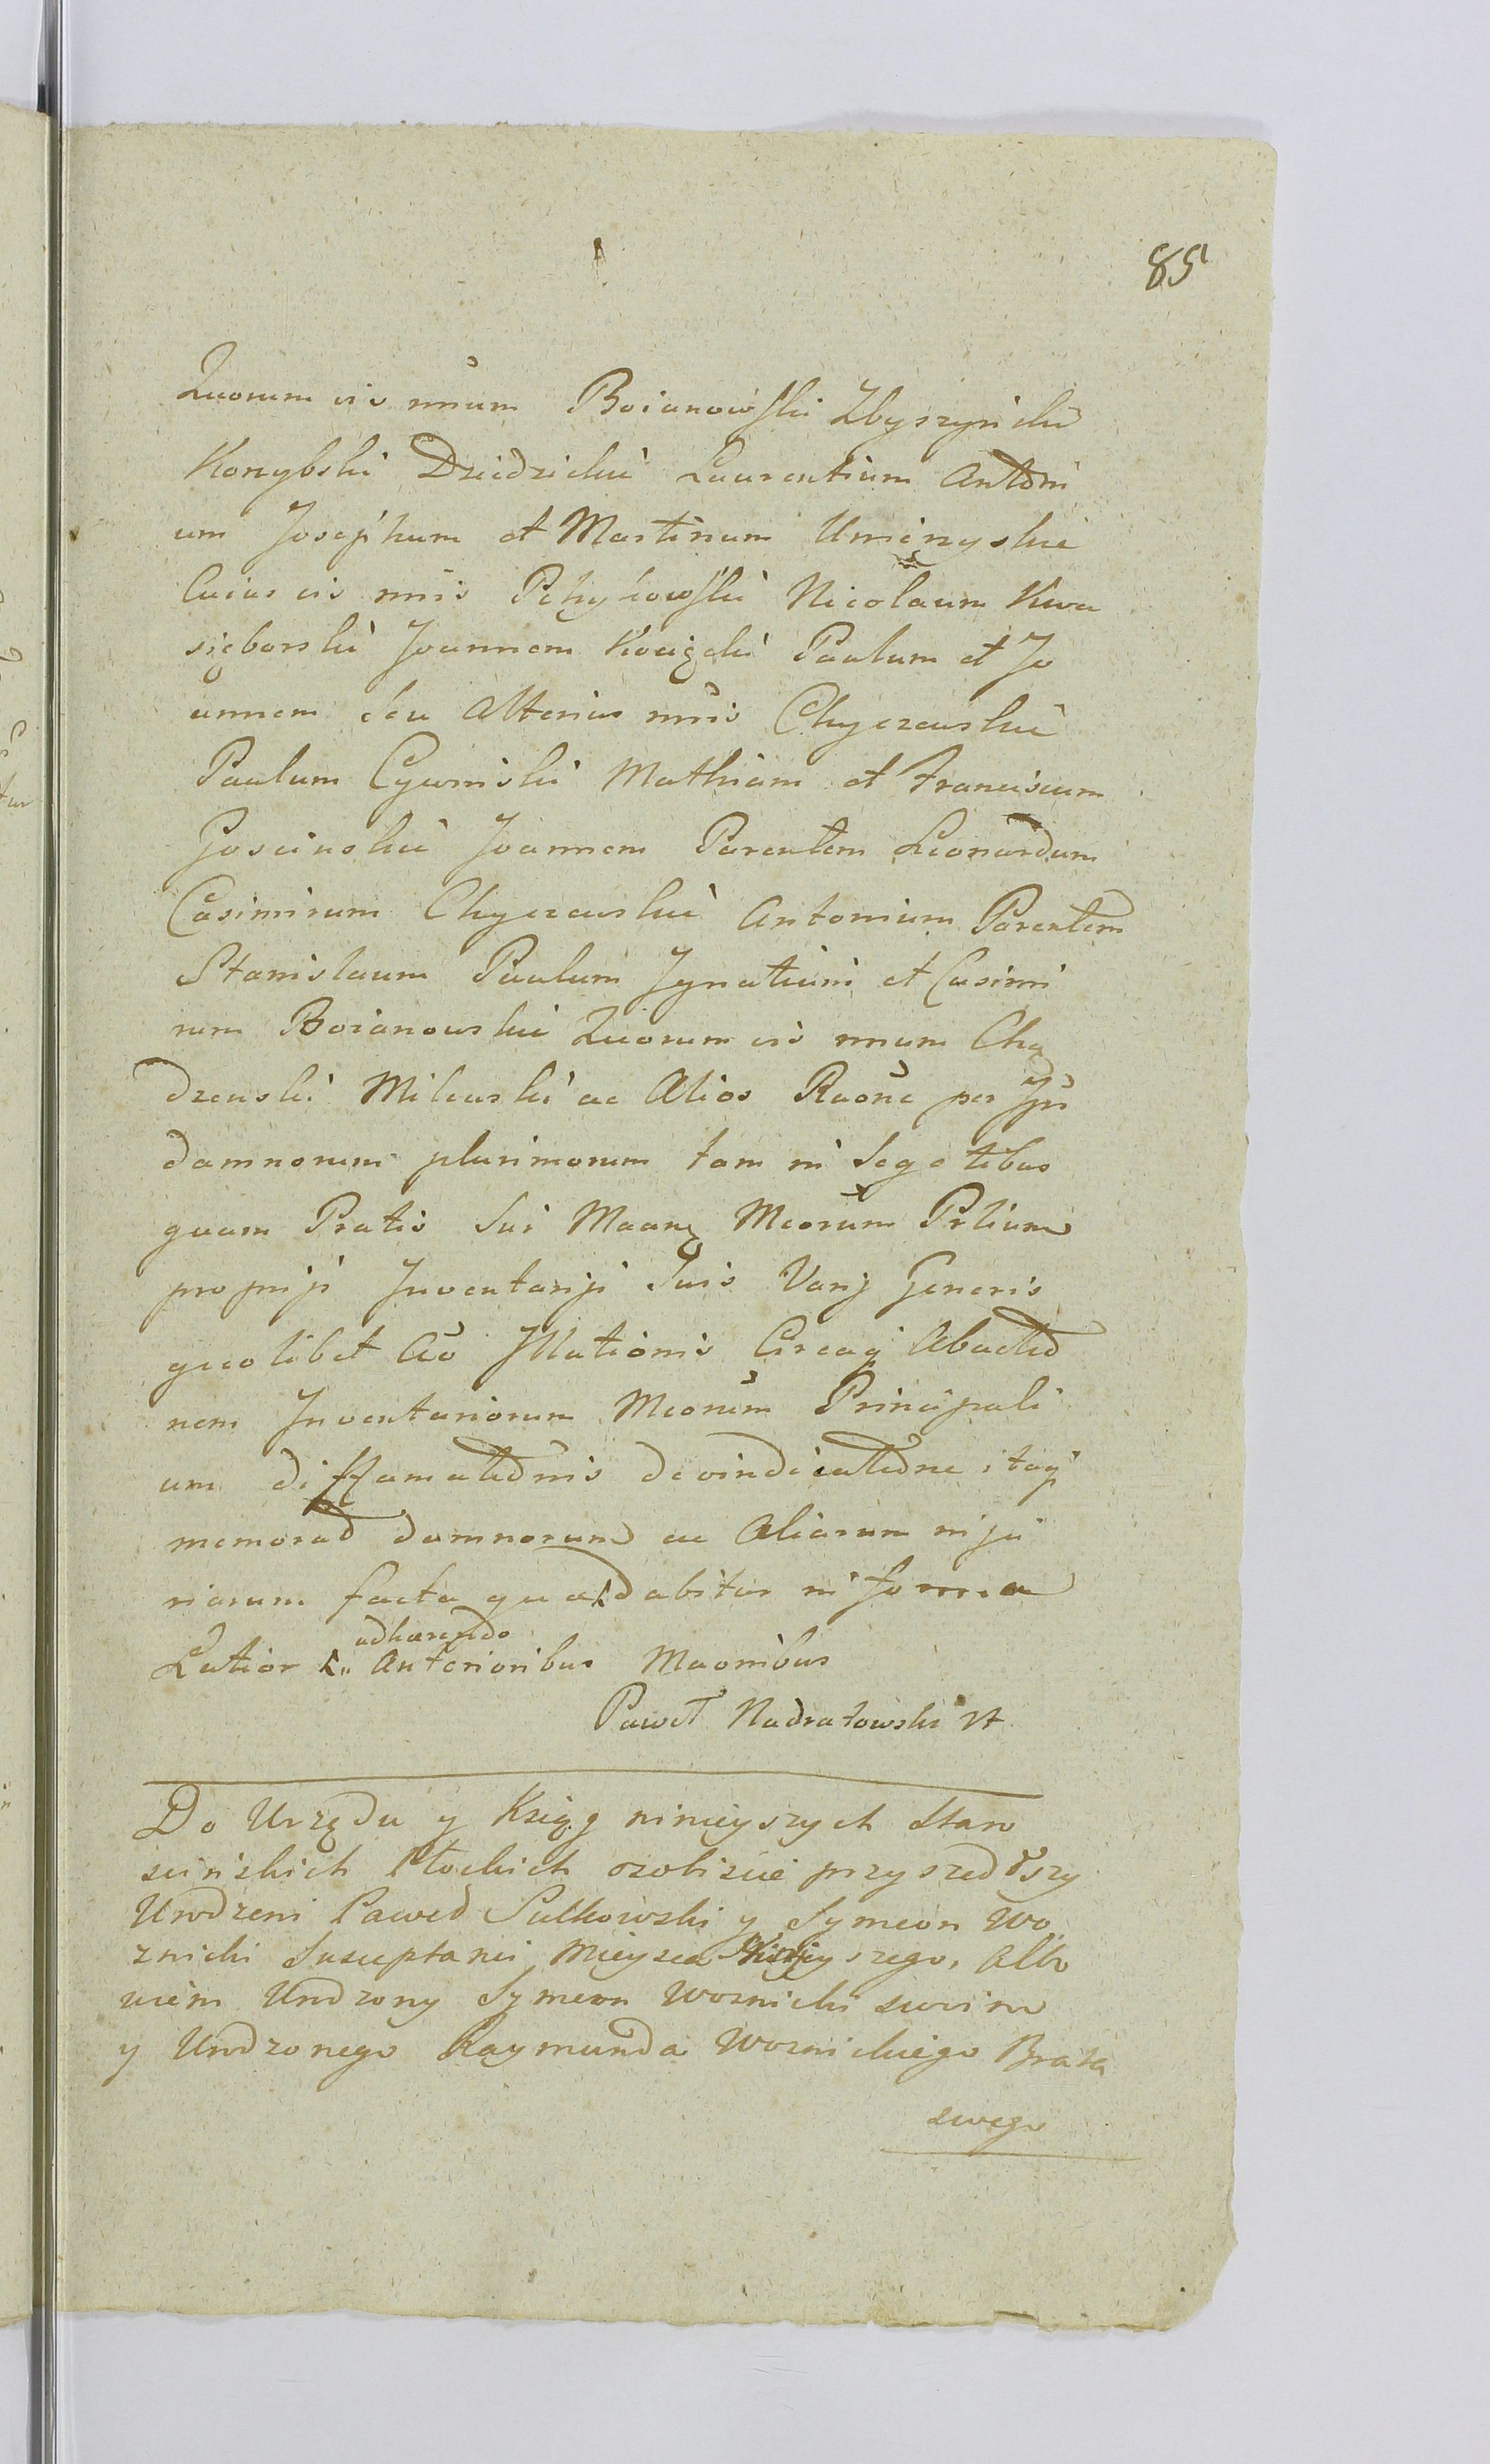 85
Quorum vis nnum Boianowski Zbyszynski
Konybski Dziedzicki Laurentium Antoni
um Josephum et Martinum Uminyskie
Cuius vis nnis Nicolaum Kwa
sięborski Joannem Paulum et Jo
annem seu Alterius nnis Chyczewskie
Paulum Cywinski Mathiam et Franciscum
Goscinskie Joannem Parentem Leonardum
Casimirum Chyczewskie Antonium Parentem
Stanislaum Paulum Ignatium et Casimi
rum Boianowskie Quorum vis nnum Chą
dzenski Milewski ac Alios Raone per
damnorum plurimorum tam in Segetibus
quam Pratis sui Meorum Prlium
proprijs Inventarijs Suis Varij Generis
quolibet Ao Illationis Circaq Abactio
nem Inventariorum Meorum Principali
um diffamationis devindicatione itaq
memorat damnorum ac Aliarum inju
riarum facta quae dabitur in forma
adhaerendo
Latior Anterioribus Maonibus
Paweł Nadratowski
Do Urzędu y Ksiąg ninieyszych Staro
scinskich Płockich osobiscie przyszedłszy
Urodzeni Paweł Sulkowski y Symeon Wo
znicki Susceptanci Mieysca Ninieyszego, Albo
wiem Urodzony Symeon Woznicki swoim
y Urodzonego Raymunda Woznickiego Brata
swego